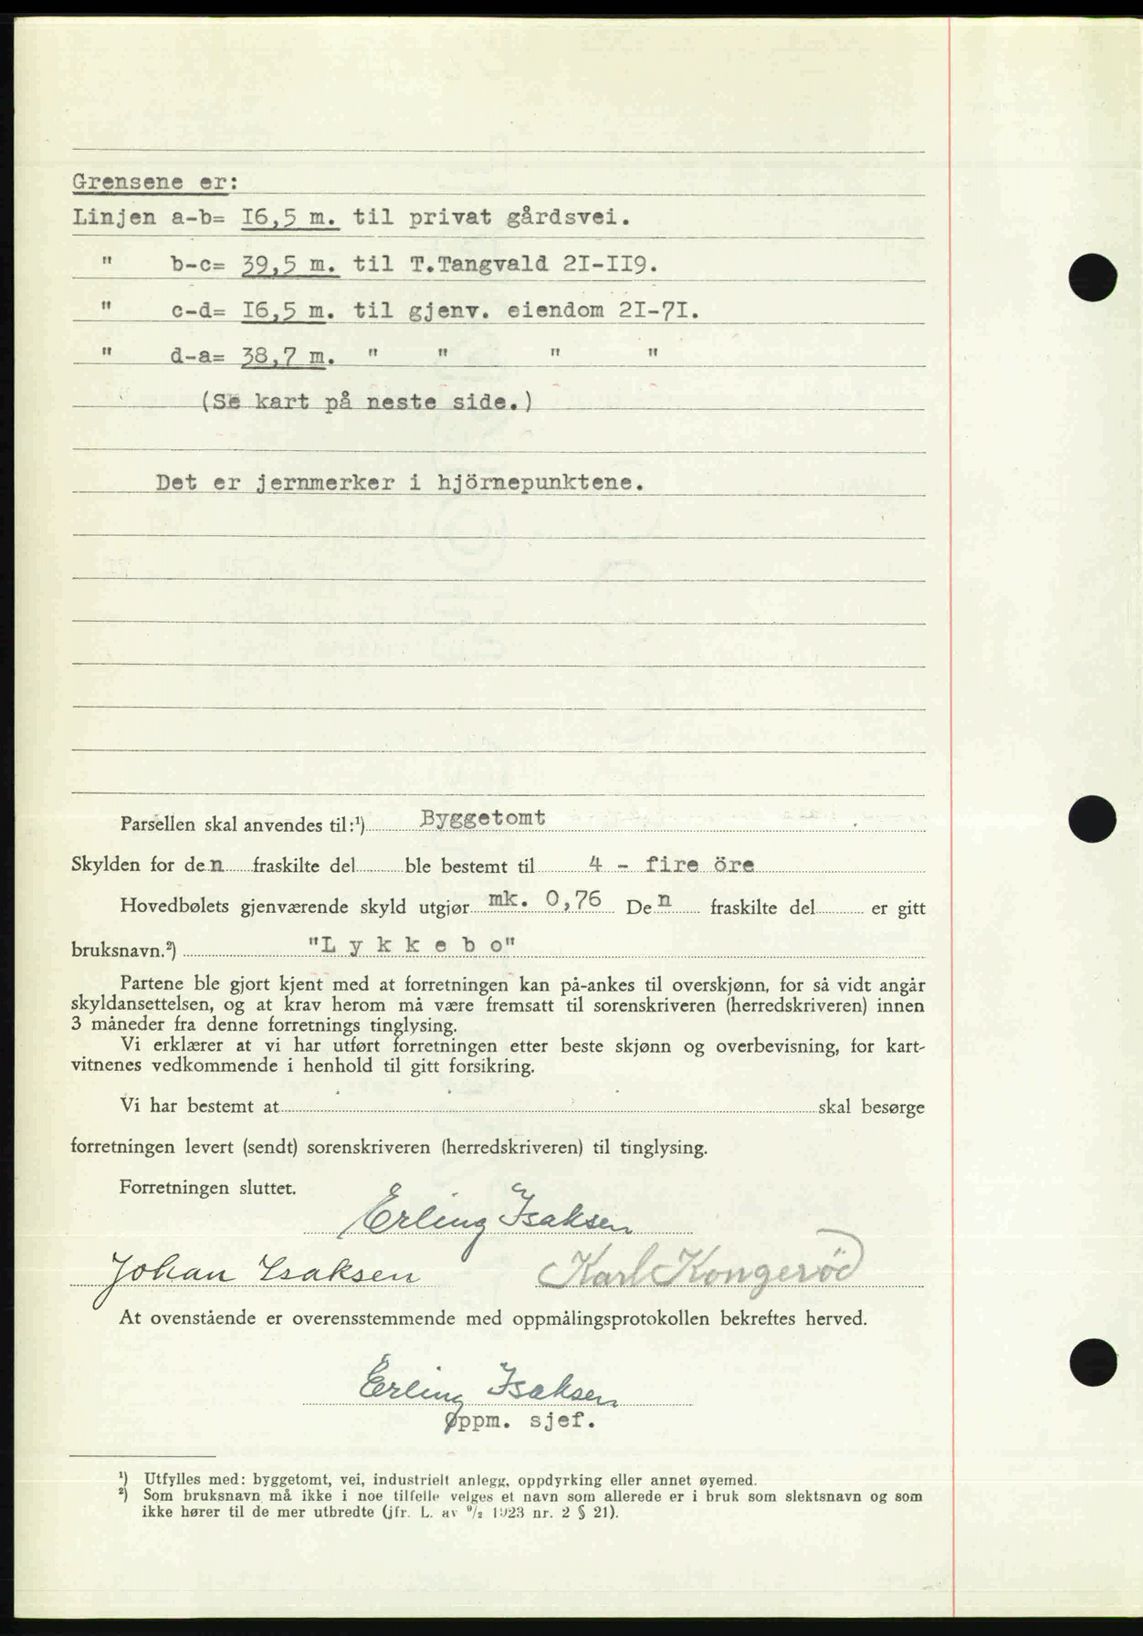 Grensene er:
Linjen a-b= I6,5 m. til privat gårdsvei.
" b-c= 39,5 m. til T.Tangvald 2I-II9.
" c-d= I6,5 m. til gjenv. eiendom 2I-7I.
" d-a= 38,7 m. " " " "
(Se kart på neste side.)
Det er jernmerker i hjörnepunktene.
Parsellen skal anvendes til:¹) Byggetomt
Skylden for den fraskilte del ble bestemt til 4 - fire öre
Hovedbølets gjenværende skyld utgjør mk. 0,76 Den fraskilte del er gitt
bruksnavn.²) "L y k k e b o"
Partene ble gjort kjent med at forretningen kan på-ankes til overskjønn, for så vidt angår
skyldansettelsen, og at krav herom må være fremsatt til sorenskriveren (herredskriveren) innen
3 måneder fra denne forretnings tinglysing.
Vi erklærer at vi har utført forretningen etter beste skjønn og overbevisning, for kart-
vitnenes vedkommende i henhold til gitt forsikring.
Vi har bestemt at skal besørge
forretningen levert (sendt) sorenskriveren (herredskriveren) til tinglysing.
Forretningen sluttet.
Erling Isaksen
Johan Isaksen Karl Kongerød
At ovenstående er overensstemmende med oppmålingsprotokollen bekreftes herved.
Erling Isaksen
Øppm. sjef.
¹) Utfylles med: byggetomt, vei, industrielt anlegg, oppdyrking eller annet øyemed.
²) Som bruksnavn må ikke i noe tilfelle velges et navn som allerede er i bruk som slektsnavn og som
ikke hører til de mer utbredte (jfr. L. av 9/2 1923 nr. 2 § 21).